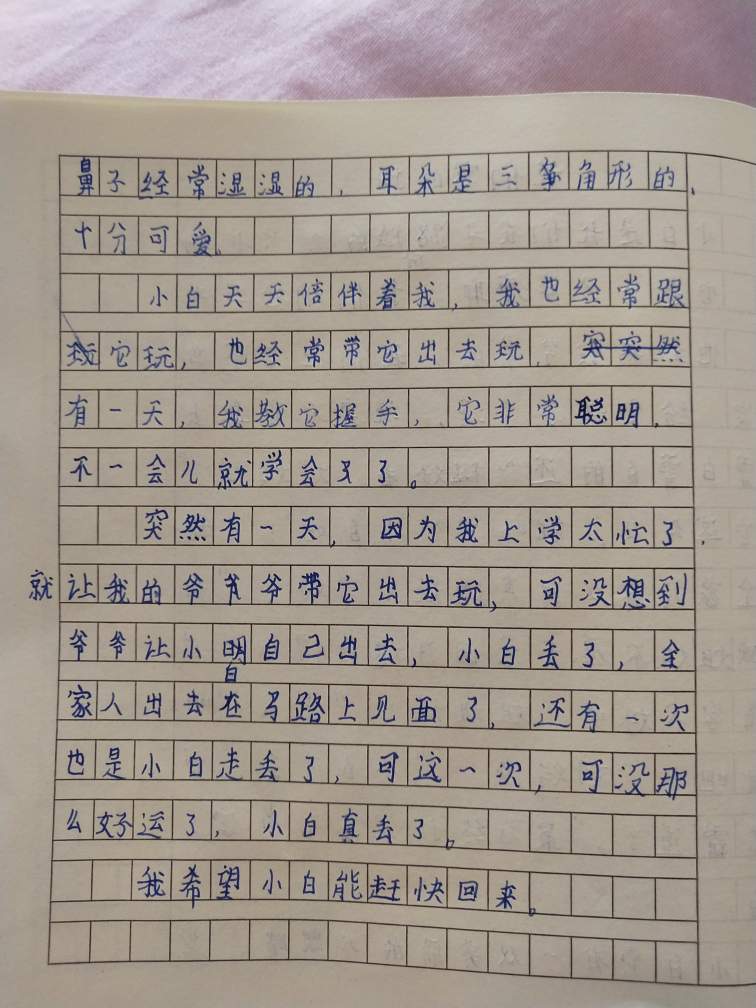 鼻子经常湿湿的，耳朵是三角形的，
十分可爱。
小白天天倍伴着我，我也经常跟
它玩，也经常带它出去玩，突突然
有一天，我教它握手，它非常聪明，
不一会儿就学会了。
突然有一天，因为我上学太忙了，
就让我的爷爷带它出去玩，可没想到
爷爷让小白自己出去，小白丢了，全
家人出去在马路上见面了，还有一次
也是小白走丢了，可这一次，可没那
么好运了，小白真丢了。
我希望小白能赶快回来。